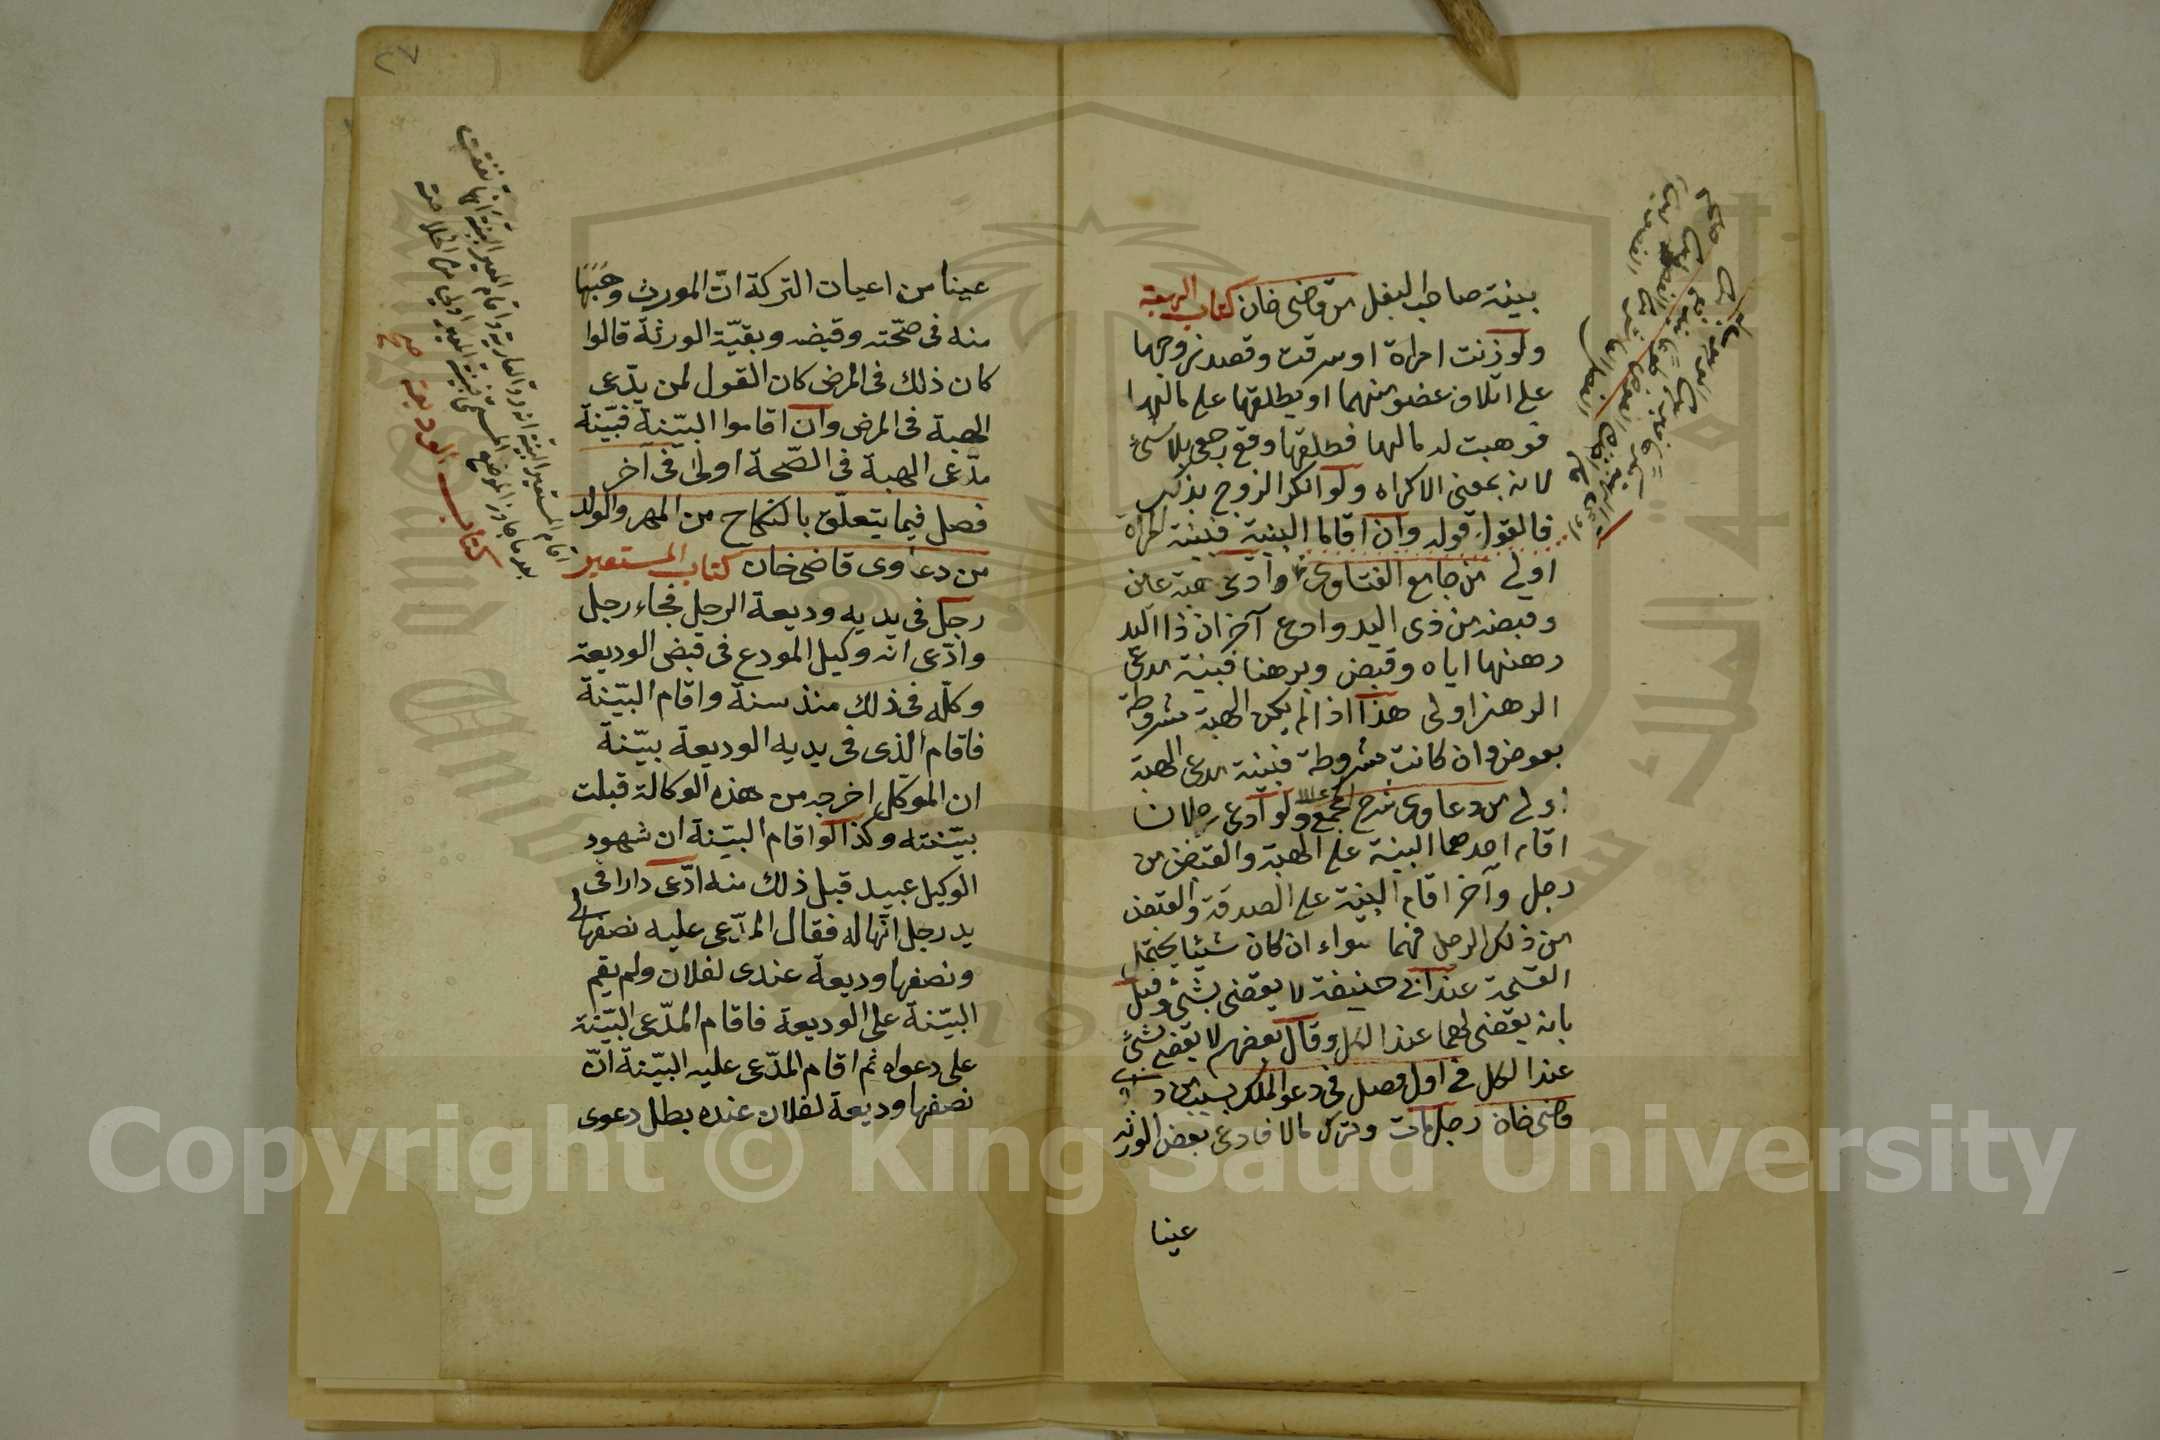 ٢٧
بينة صاحب البغل من قاضى خان كتاب الهبة
ولو زنت امراة او سرقت وقصد زوجها
على اتلاف عضو منهما او يطلقها على مالها
فوهبت له مالها فطلقها وقع رجعى بلا شئ
لانه بمعنى الاكراه ولو انكر الزوج بذلك
فالقول قوله وان اقاما البينة فبينة المراة
اولى من جامع الفتاوى وادعى هبة عين
وقبضه من ذى اليد وادعى آخر ان ذا اليد
رهنها اياه وقبض وبرهنا فبينة مدعى
الرهن اولى هذا اذا لم يكن الهبة مشروطة
بعوض وان كانت مشروطة فبينة مدعى الهبة
اولى من دعاوى شرح المجمع ولو ادعى رجلان
اقام احدهما البينة على الهبة والقبض من
رجل وآخر اقام البينة على الصدقة والقبض
من ذلك الرجل فهما سواء ان كان شيئا يحتمل
القسمة عند ابى حنيفة لا يقضى بشئ وقيل
بانه يقضى لهما عند الكل وقال بعضهم لا يقضى بشئ
عند الكل فى اول فصل فى دعوى الملك بسبب من
قاضى خان رجل مات وترك مالا فادعى بعض الورثة
عينا
عينا من اعيان التركة ان المورث وهبها
منه فى صحته وقبضه وبقية الورثة قالوا
كان ذلك فى المرض كان القول لمن يدّعى
الهبة فى المرض وان اقاموا البيّنة فبيّنة
مدّعى الهبة فى الصّحة اولى فى آخر
فصل فيما يتعلّق بالنكاح من المهر والولد
من دعاوى قاضى خان كتاب المستعير
رجل فى يديه وديعة الرجل فجاء رجل
وادّعى انه وكيل المودع فى قبض الوديعة
وكلّه فى ذلك منذ سنة واقام البيّنة
فاقام الّذى فى يديه الوديعة بيّنة
ان الموكل اخرجه من هذه الوكالة قبلت
بيّنته وكذا لو اقام البيّنة ان شهود
الوكيل عبيد قبل ذلك منه ادّعى دارا فى
يد رجل انّها له فقال المدّعى عليه نصفها لى
ونصفها وديعة عندى لفلان ولم يقم
البيّنة على الوديعة فاقام المدّعى البيّنة
على دعواه ثم اقام المدّعى عليه البيّنة انّ
نصفها وديعة لفلان عنده بطل دعوى
اقام المستعير البينة انه رد العارية واقام المعير البينة انها نفقت
بعد ما جاوز الموضع المسمى فبينة المعير اولى من الخلاصة
كتاب الوديعة صح
Copyright © King Saud University